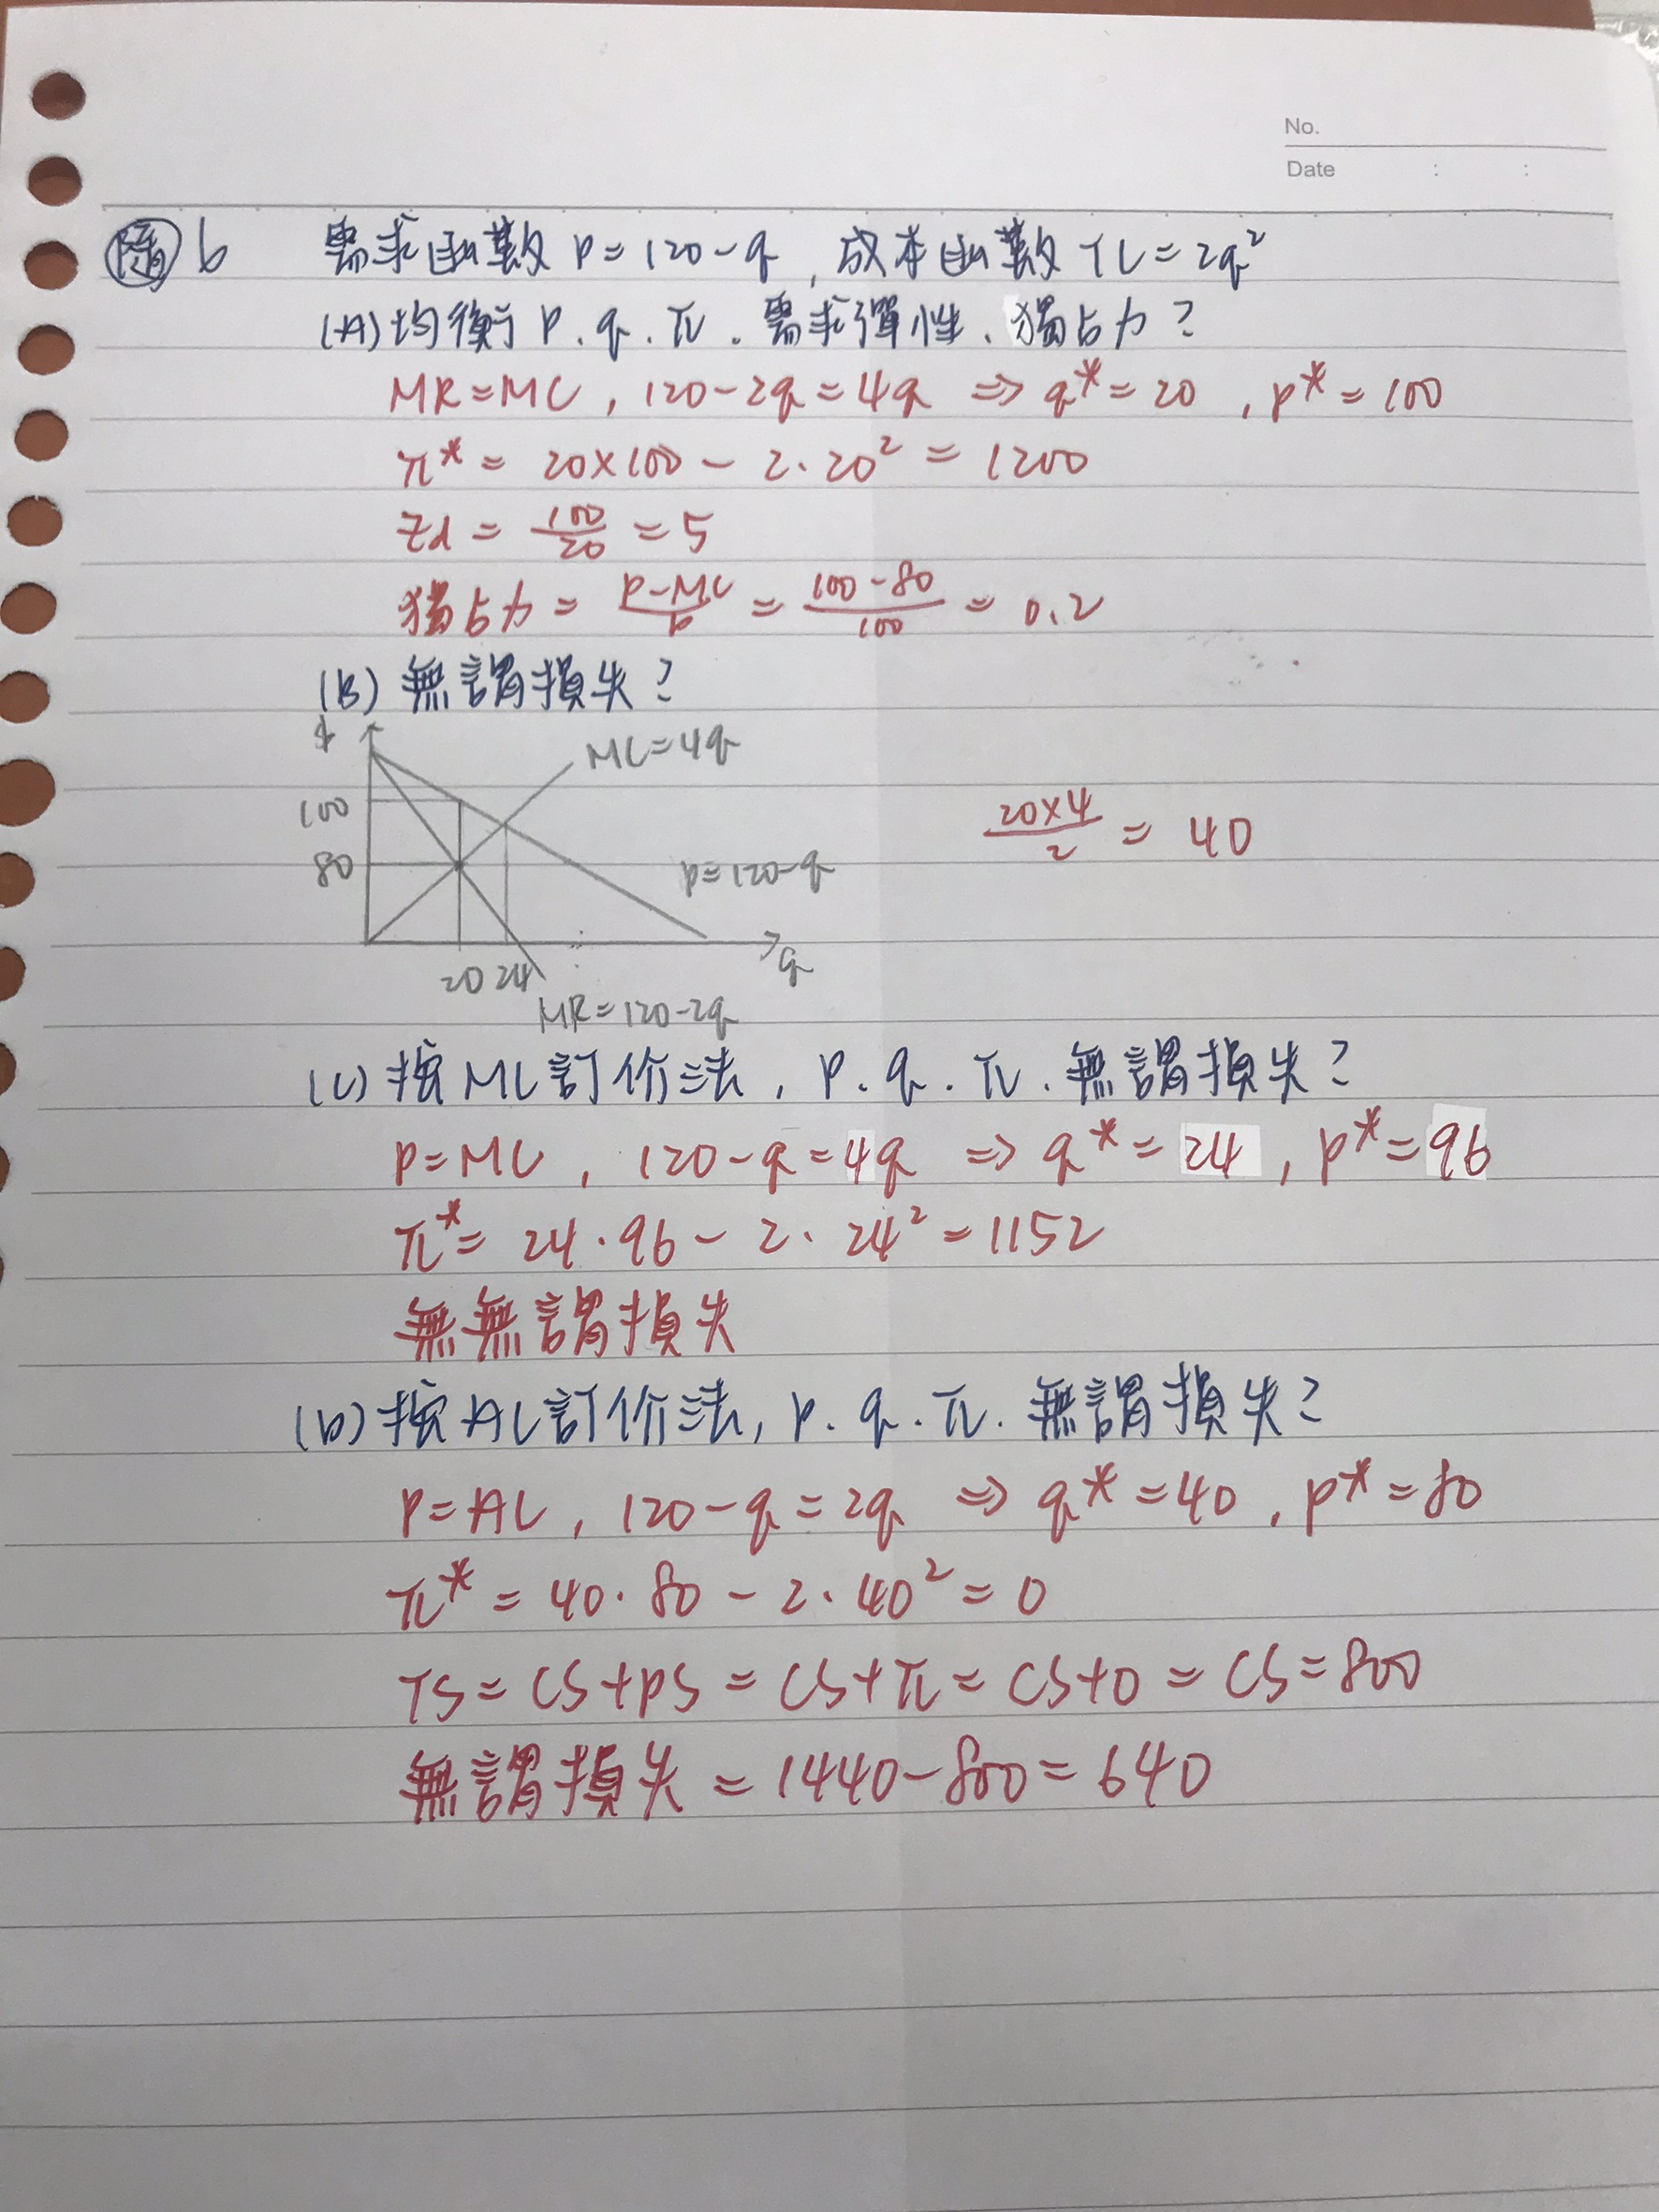 No.
Date : :
隨 6 需求函數 P=120-q, 成本函數 TC=2q²
(A) 均衡 P.q.π.需求彈性、獨占力?
MR=MC, 120-2q=4q ⇒ q*=20, p*=100
π*= 20×100 - 2·20² = 1200
εd = 100/20 = 5
獨占力 = P-MC/P = 100-80/100 = 0.2
(B) 無謂損失?
$
MC=4q
100
80
20×4/2 = 40
P=120-q
q
20 24
MR=120-2q
(C) 按MC訂价法, P.q.π.無謂損失?
P=MC, 120-q=4q ⇒ q*=24, p*=96
π*= 24·96 - 2·24² = 1152
無無謂損失
(D) 按AC訂价法, P.q.π.無謂損失?
P=AC, 120-q=2q ⇒ q*=40, p*=80
π*= 40·80 - 2·40² = 0
TS=CS+PS = CS+π = CS+0 = CS=800
無謂損失 = 1440-800 = 640